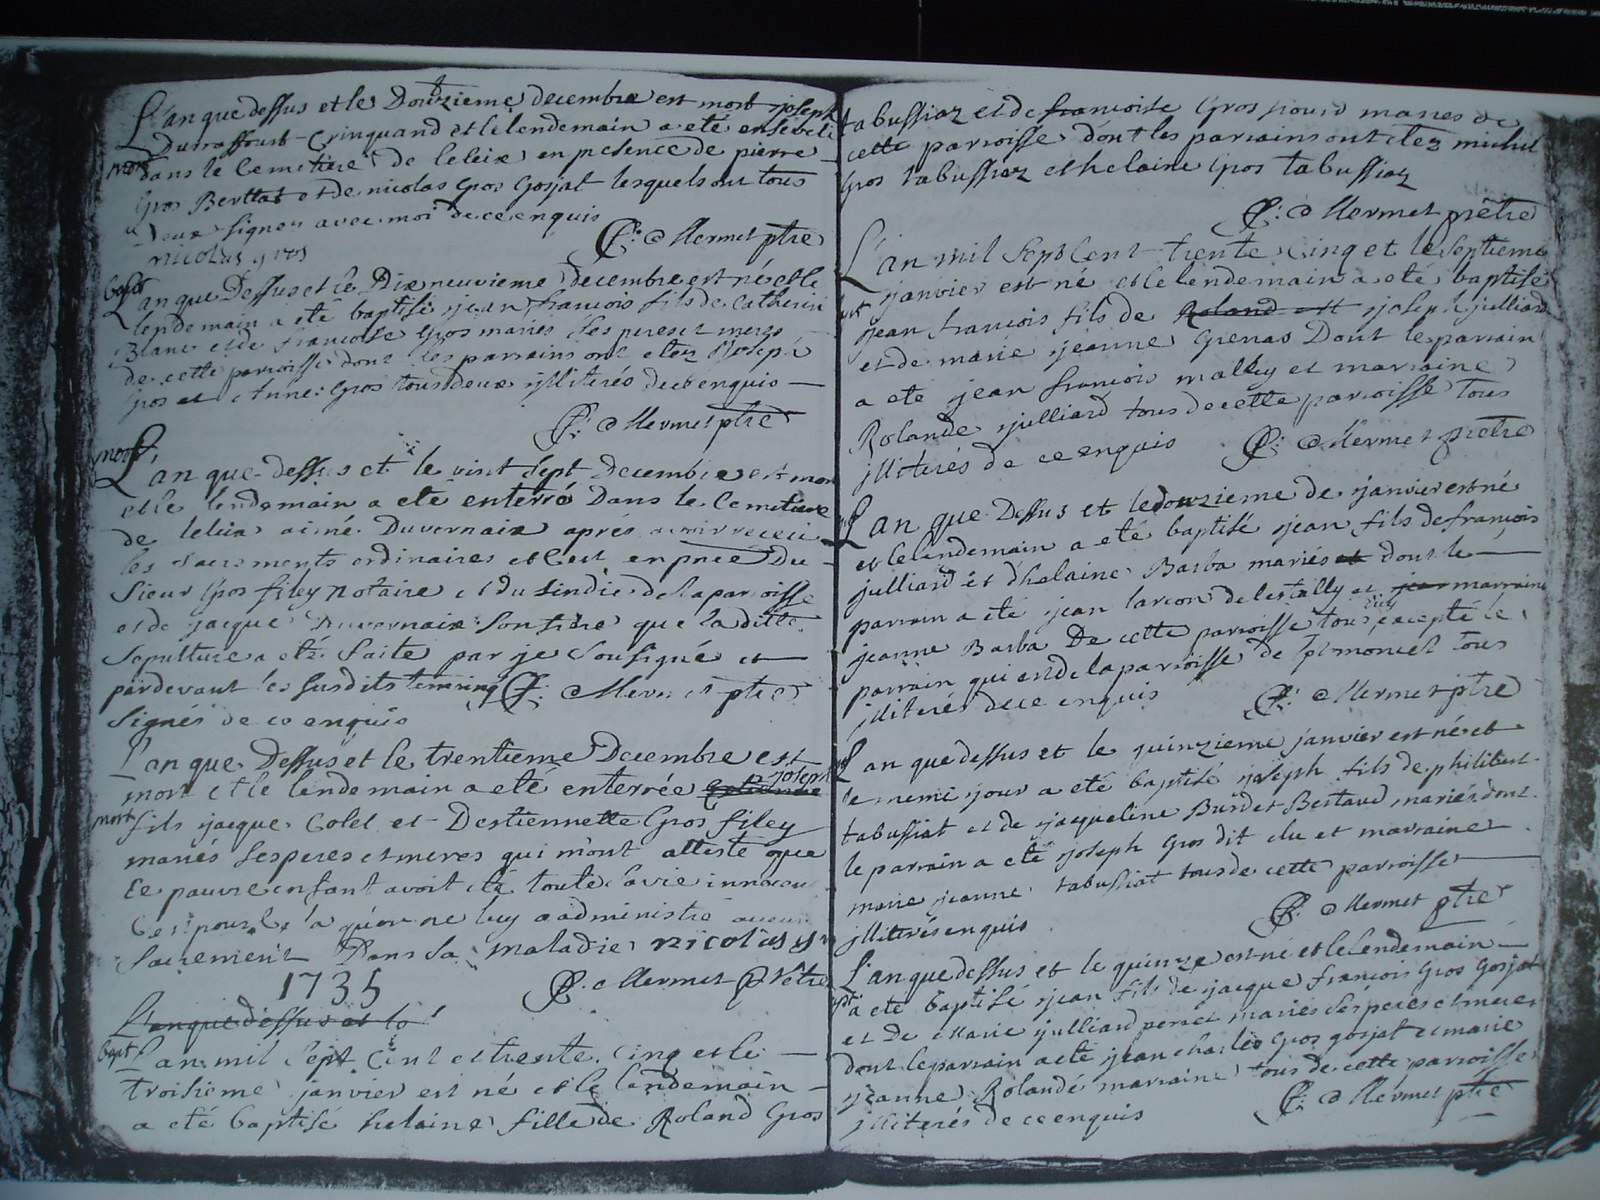 L'an que dessus et le Douzieme decembre est mort joseph
Durraffourt-Crinquand et le lendemain a eté enseveli
mort dans le Cemetiere de leleix en presence de pierre
Gros Berttat et de nicolas Gros Gosjat lesquels ont tous
Deux signer avec moi de ce enquis
nicolas gros
C: Mermet ptre
bapt
L'an que Dessus et le Dixneuvieme decembre est né et le
lendemain a eté baptisé jean francois fils de Catherin
Blanc et de francoise Gros mariés ses peres et meres
de cette parroisse dont les parrains ont etez Joseph
gros et Anne Gros tous deux illiterés de ce enquis
C: Mermet ptre
mort
L'an que dessus et le vint sept Decembre est mort
et le lendemain a eté enterré Dans le Cemetiere
de leleix aimé Duvernaix aprés avoir receu
les sacrements ordinaires et c'est en pnce Du
Sieur Gros filey Notaire et du sindic de la parroisse
et de jacque Duvernaix son frere que la ditte
Sepulture a eté faite par je Sousigné et
pardevant les susdits temoing C: Mermet ptre
Signés de ce enquis
L'an que Dessus et le trentieme Decembre est
mort et le lendemain a eté enterrée joseph
mort fils jacque Colet et Destiennette Gros filey
mariés ses peres et meres qui m'ont attesté que
Ce pauvre enfant avoit eté toute sa vie innocent
C'est pour
qu'on ne luy a administré aucun
Sacrement Dans sa maladie nicolas
1735 C: Mermet Prêtre
L'an que dessus et le
bapt L'an mil sept Cent et trente cinq et le
troisieme janvier est né et le lendemain
a eté baptisé helaine fille de Roland Gros
tabussiaz et de francoise Gros mariés de
cette parroisse dont les parrains ont etez michel
Gros tabussiaz et helaine Gros tabussiaz
C: Mermet prêtre
L'an mil Sept Cent trente Cinq et le Septieme
janvier est né et le lendemain a eté baptisé
jean francois fils de Roland et joseph julliard
et de marie jeanne Grenas Dont le parrain
a eté jean francois malley et marraine
Rolande julliard tous de cette parroisse tous
illiterés de ce enquis C: Mermet prêtre
L'an que Dessus et le douzieme de janvier est né
et le lendemain a eté baptisé jean fils de francois
julliard et d'helaine Barba mariés et dont le
parrain a eté jean larcon de lestally et jean marraine
jeanne Barba De cette parroisse tous excepté le
parrain qui en de la parroisse de st moncel tous
illiterés de ce enquis C: Mermet ptre
L'an que dessus et le quinzieme janvier est né et
le meme jour a eté baptisé joseph fils de philibert
tabussiat et de jacqueline Burdet Bertaud mariés dont
le parrain a eté joseph Gros dit clu et marraine
marie jeanne tabussiat tous de cette parroisse
illiterés enquis C: Mermet ptre
L'an que dessus et le quinze est né et le lendemain
bpt a eté baptisé jean fils de jacque francois Gros Gosjat
et De Marie julliard pere et mariés ses peres et meres
dont le parrain a eté jean charles Gros gosjat et marie
jeanne Rolande marraine tous de cette parroisse
illiterés de ce enquis C: Mermet ptre